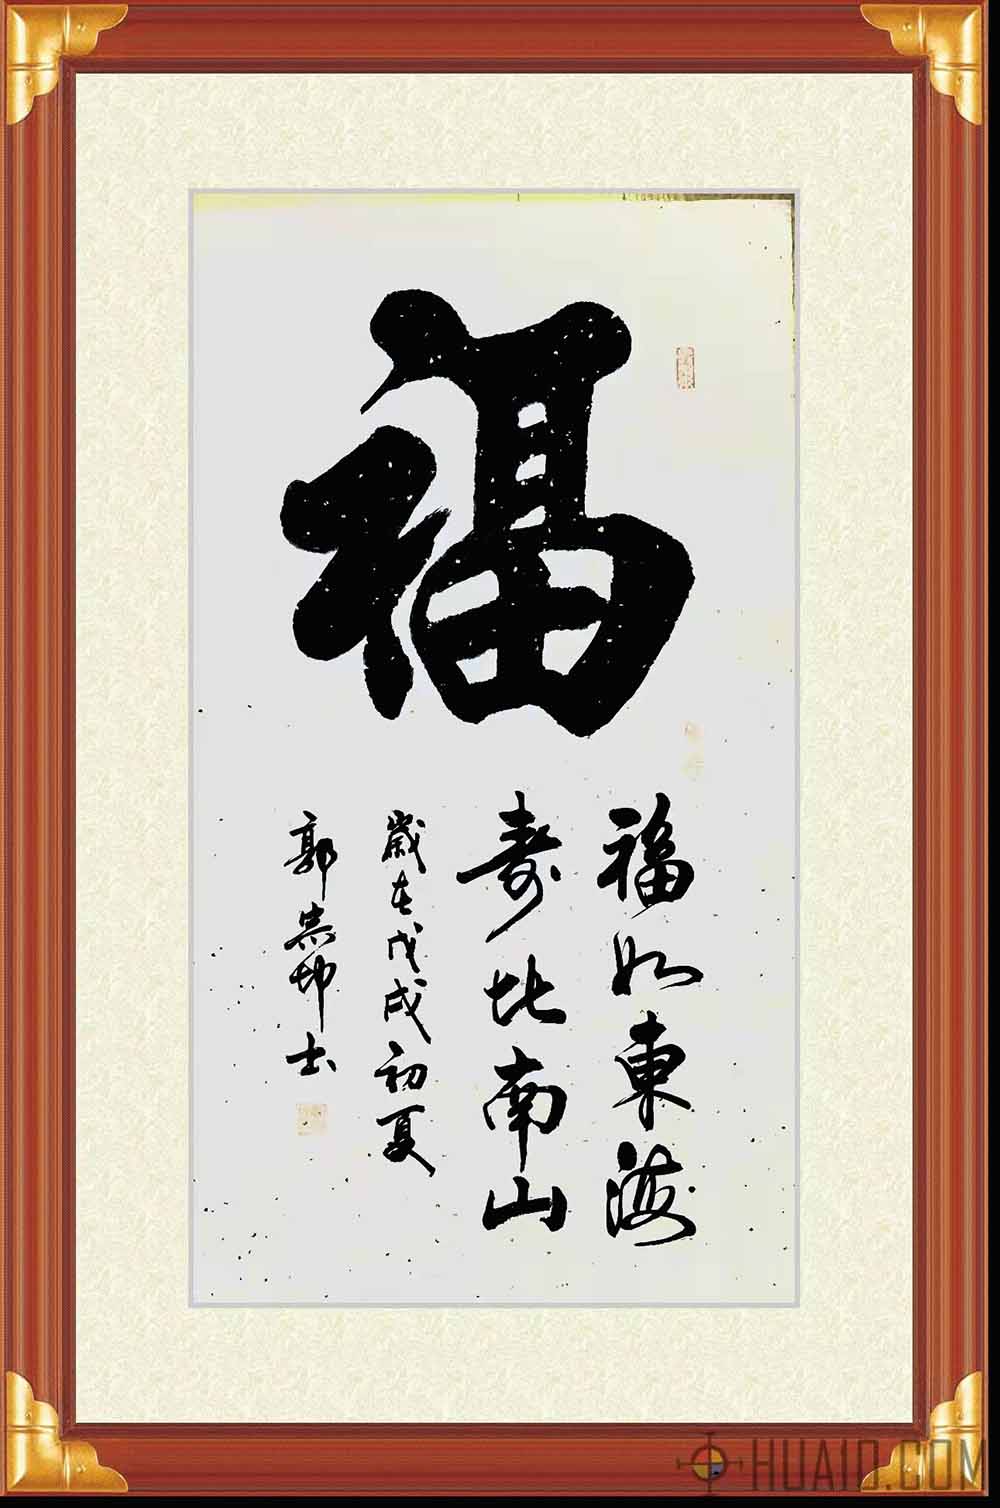 福
福如東海
壽比南山
歲在戊戌初夏
郭崇坤書
HUA10.COM